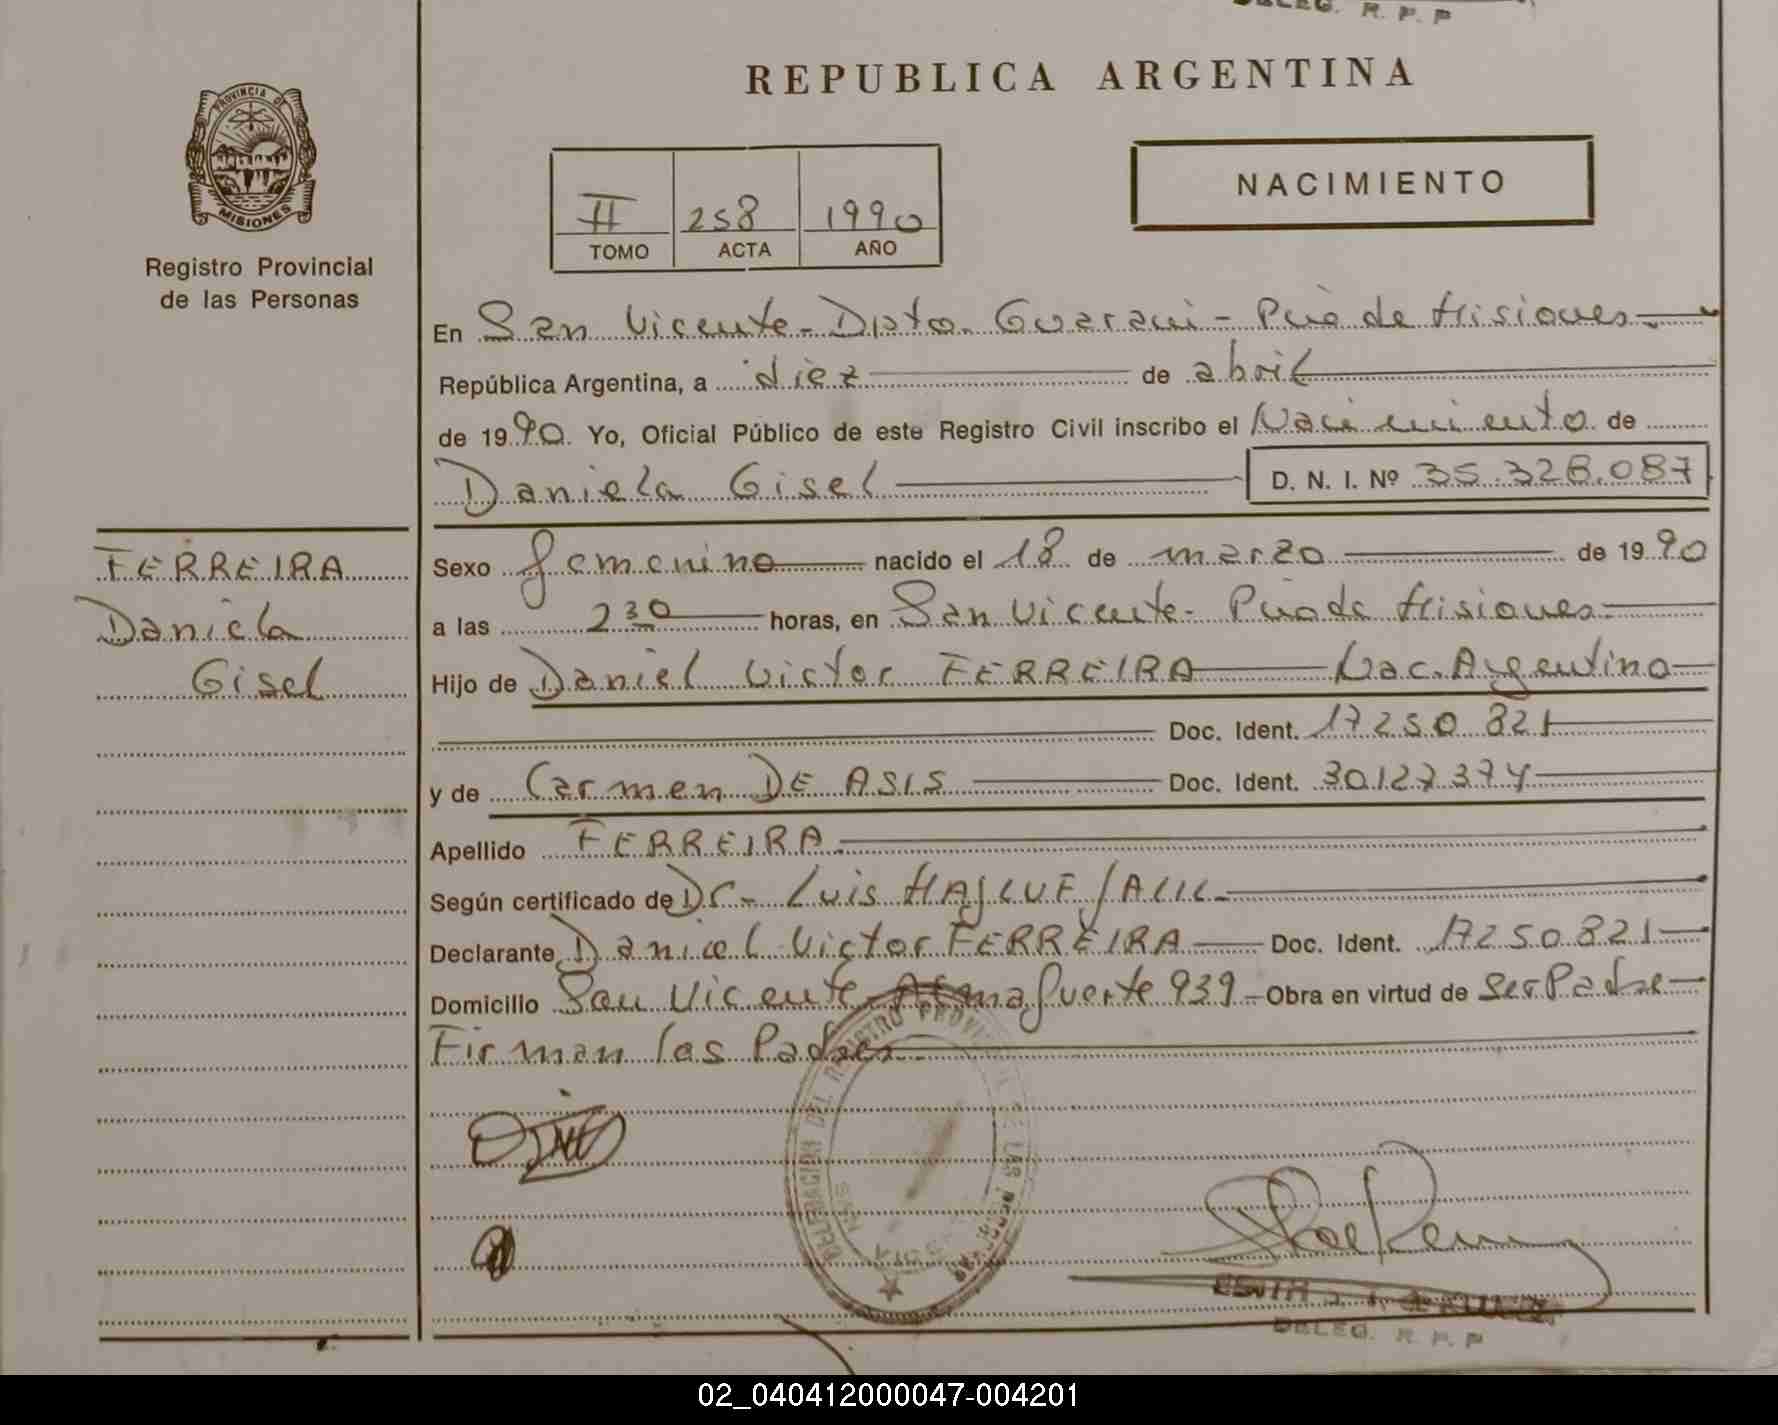 DELEG. R. P. P
REPUBLICA ARGENTINA
PROVINCIA DE
MISIONES
Registro Provincial
de las Personas
II 258 1990
TOMO ACTA AÑO
NACIMIENTO
En San Vicente - Dpto. Guarani - Pcia de Misiones
República Argentina, a diez de abril
de 1990. Yo, Oficial Público de este Registro Civil inscribo el Nacimiento de
Daniela Gisel D. N. I. Nº 35.328.087
FERREIRA
Daniela
Gisel
Sexo femenino nacido el 18 de marzo de 1990
a las 2 30 horas, en San Vicente - Pcia de Misiones
Hijo de Daniel Victor FERREIRA Nac. Argentino
Doc. Ident. 17250821
y de Carmen DE ASIS Doc. Ident. 30127374
Apellido FERREIRA
Según certificado de Dr. Luis
Declarante Daniel Victor FERREIRA Doc. Ident. 17250821
Domicilio San Vicente Almafuerte 939 - Obra en virtud de Ser Padre
Firman los Padres
DELEGACION DEL REGISTRO PROVINCIAL DE LAS PERSONAS
DELEG. R. P. P
02_040412000047-004201